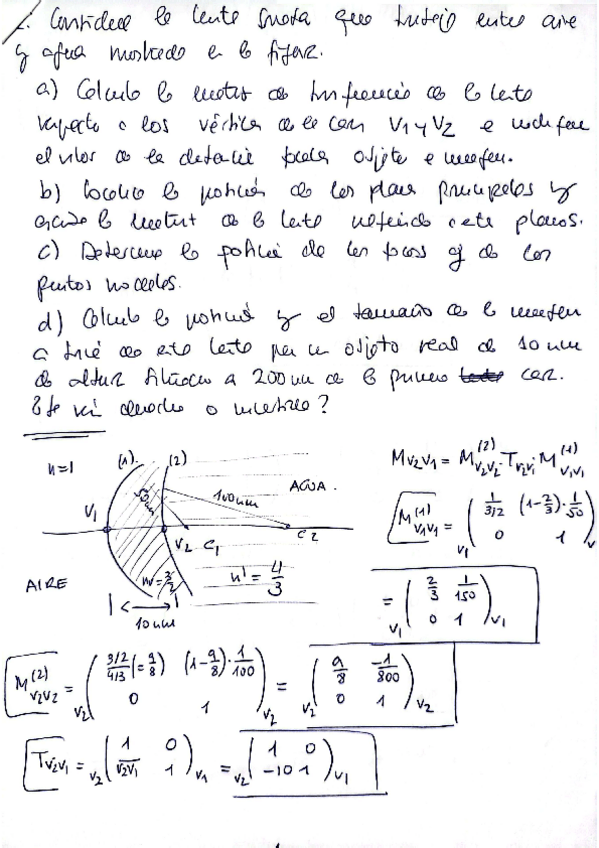 2. Considere la lente gruesa que trabaja entre aire
y agua mostrada en la figura.
a) Calcule la matriz de transferencia de la lente
respecto a los vértices de las caras V1 y V2 e indique
el valor de la distancia focal objeto e imagen.
b) Localice la posición de los planos principales y
escriba la matriz de la lente referida a estos planos.
c) Determine la posición de los focos y de los
puntos nodales.
d) Calcule la posición y el tamaño de la imagen
a través de esta lente para un objeto real de 10 mm
de altura situado a 200 mm de la primera cara.
¿Se ve derecho o invertido?
n=1 (1) (2)
AGUA
50 mm 100 mm
V1 V2 C1 C2
AIRE n=3/2 n'=4/3
10 mm
M_{V2V1} = M^{(2)}_{V2V2} T_{V2V1} M^{(1)}_{V1V1}
M^{(1)}_{V1V1} = _{V1}( 1/(3/2) (1-2/3)·1/50
0 1 )_V
= _{V1}( 2/3 1/150
0 1 )_{V1}
M^{(2)}_{V2V2} = _{V2}( (3/2)/(4/3) (=9/8) (1-9/8)·1/100
0 1 )_{V2} = _{V2}( 9/8 -1/800
0 1 )_{V2}
T_{V2V1} = _{V2}( 1 0
V2V1 1 )_{V1} = _{V2}( 1 0
-10 1 )_{V1}